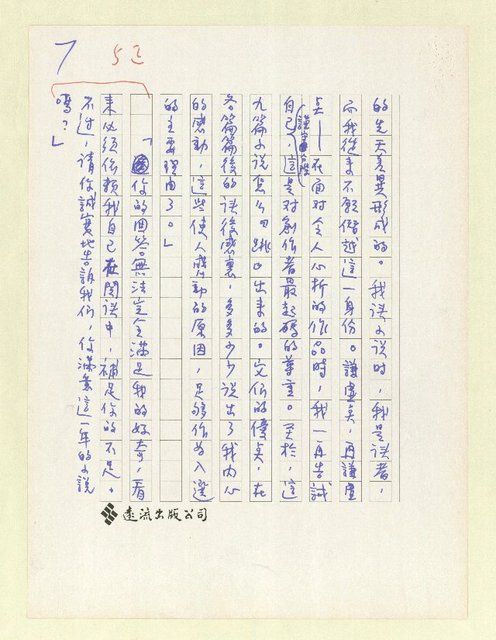 7 53
的先天差異形成的。我讀小說時，我是讀者，
而我從來不願僭越這一身份。謙虛矣，再謙虛
矣——在面對令人心折的作品時，我一再告誡
自己，這是对創作者最起碼的尊重。至於，這
九篇小說怎么口跳口出來的。它们的優矣，在
各篇篇後的讀後感裏，多多少少说出了我内心
的感動，這些使人感動的原因，足够作为入選
的主要理由了。」
「你的回答無法完全滿足我的好奇，看
來必須依賴我自己在閱讀中，補足你的不足。
不过，請你誠實地告訴我们，你滿意這一年的小說
嗎？」
遠流出版公司